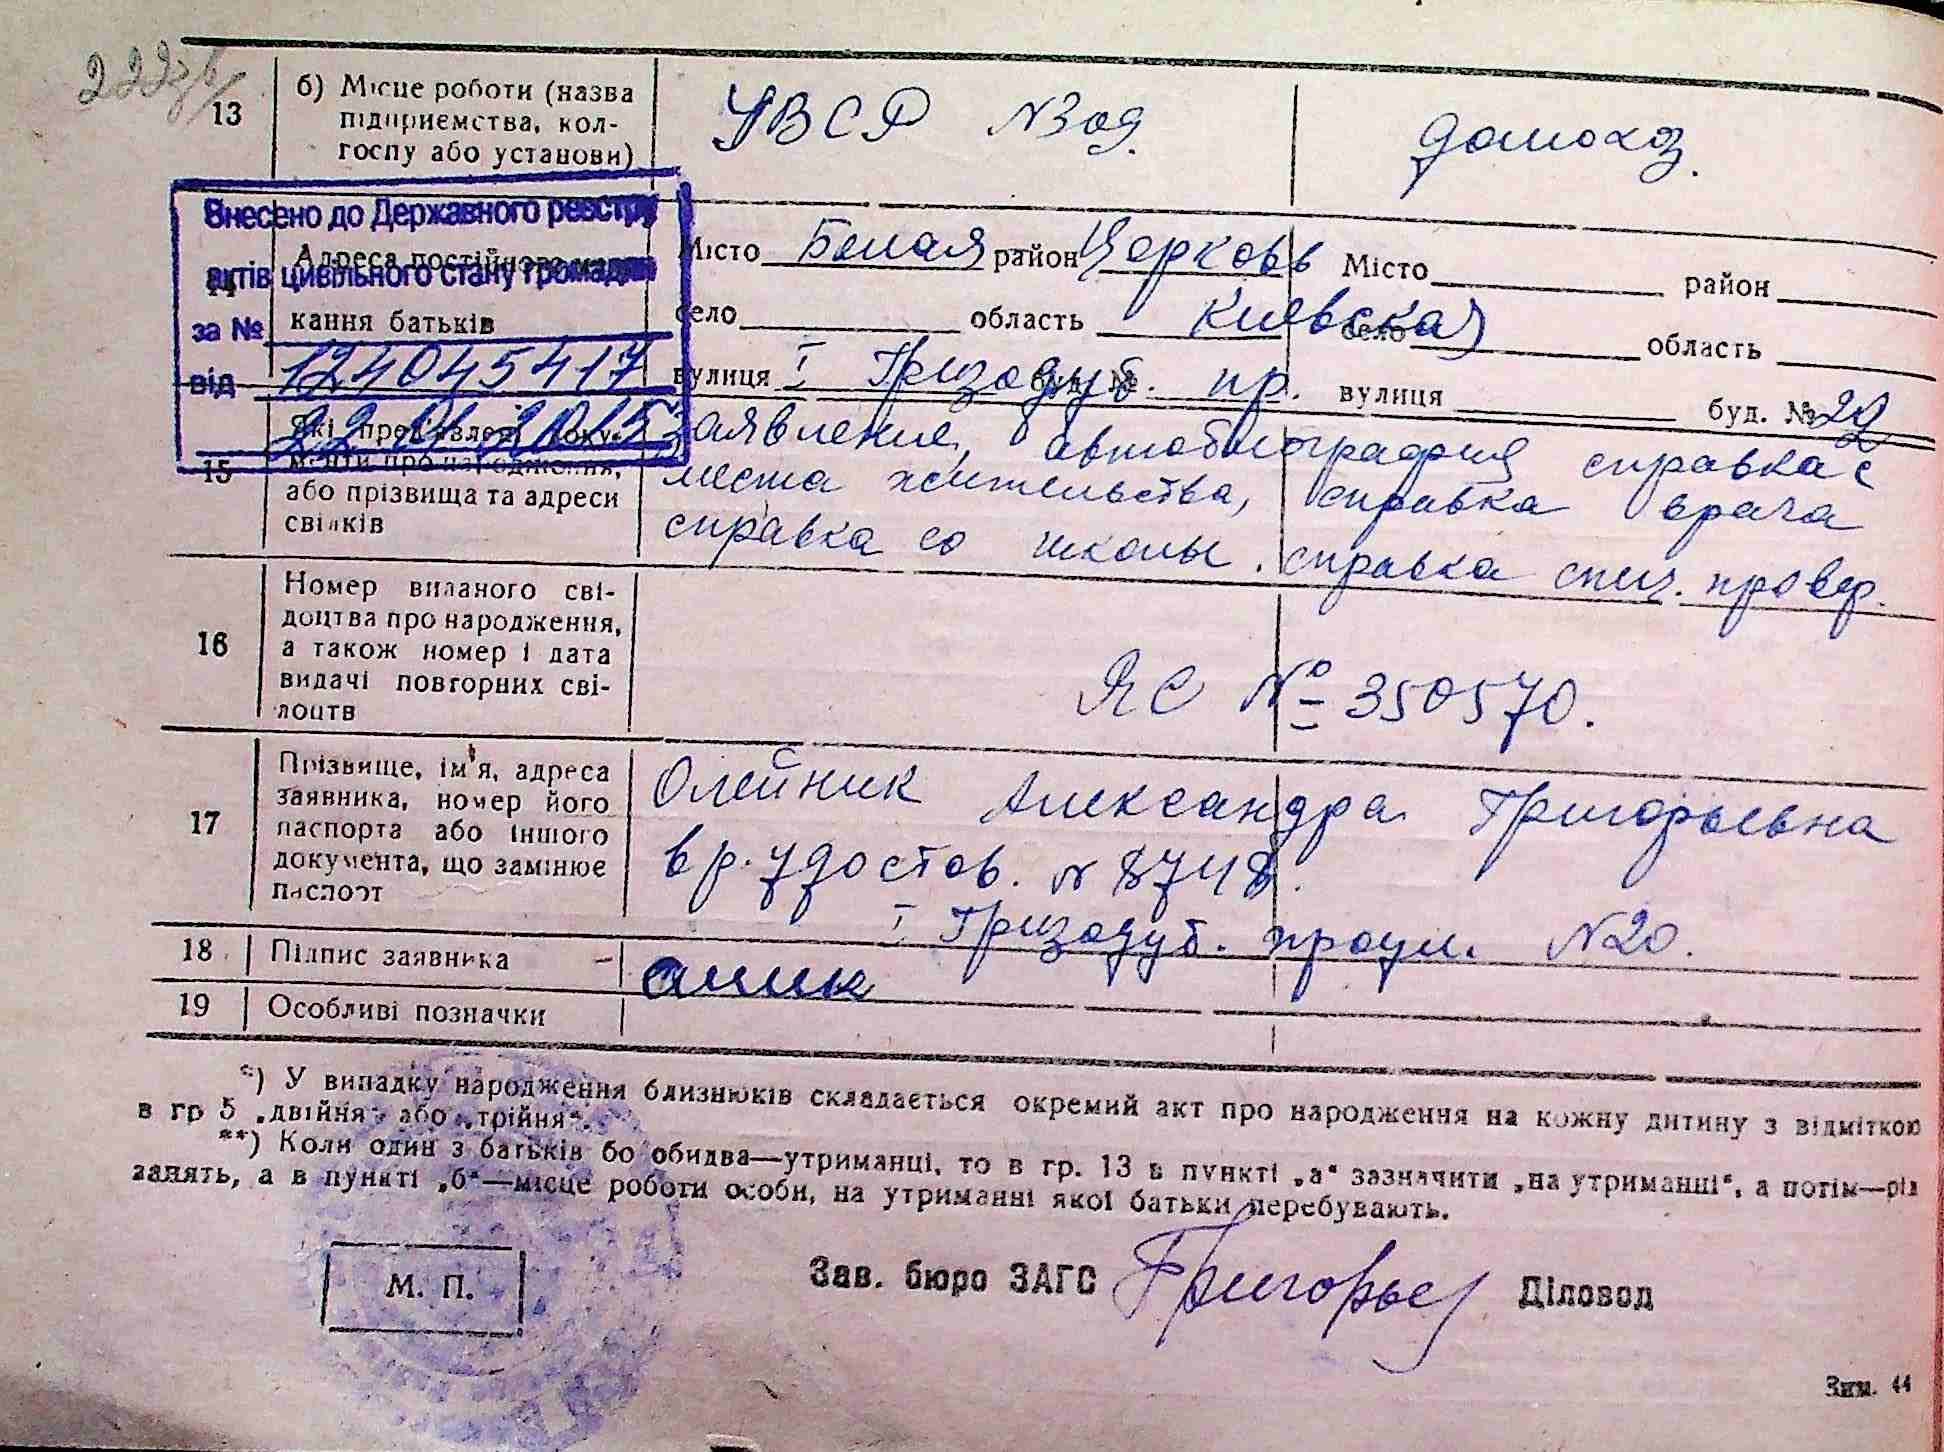 222зв
13
б) Місце роботи (назва
підприємства, кол-
госпу або установи)
УВСР N309.
домохоз.
Внесено до Державного реєстру
актів цивільного стану громадян
за № 124045417
від 22 01 2015
14
Адреса постійного
кання батьків
Місто Белая район Церковь
село область Киевская
вулиця I Гризодуб. пр. буд. №
Місто район
село область
вулиця буд. № 20
15
Які пред'явлені доку-
менти про народження,
або прізвища та адреси
свідків
Заявление, автобиография справка с
места жительства, справка врача
справка со школы. справка спец. провер.
16
Номер виданого сві-
доцтва про народження,
а також номер і дата
видачі повторних сві-
доцтв
ЯС № 350570.
17
Прізвище, ім'я, адреса
заявника, номер його
паспорта або іншого
документа, що замінює
паспорт
Олейник Александра Григорьевна
вр. удостов. N 8748.
I Гризодуб. проул. N20.
18
Підпис заявника
19
Особливі позначки
*) У випадку народження близнюків складається окремий акт про народження на кожну дитину з відміткою
в гр 5 „двійня" або „трійня".
**) Коли один з батьків бо обидва—утриманці, то в гр. 13 в пункті „а" зазначити „на утриманні", а потім—рід
занять, а в пункті „б"—місце роботи особи, на утриманні якої батьки перебувають.
М. П.
Зав. бюро ЗАГС Григорьев Діловод
Зим. 44